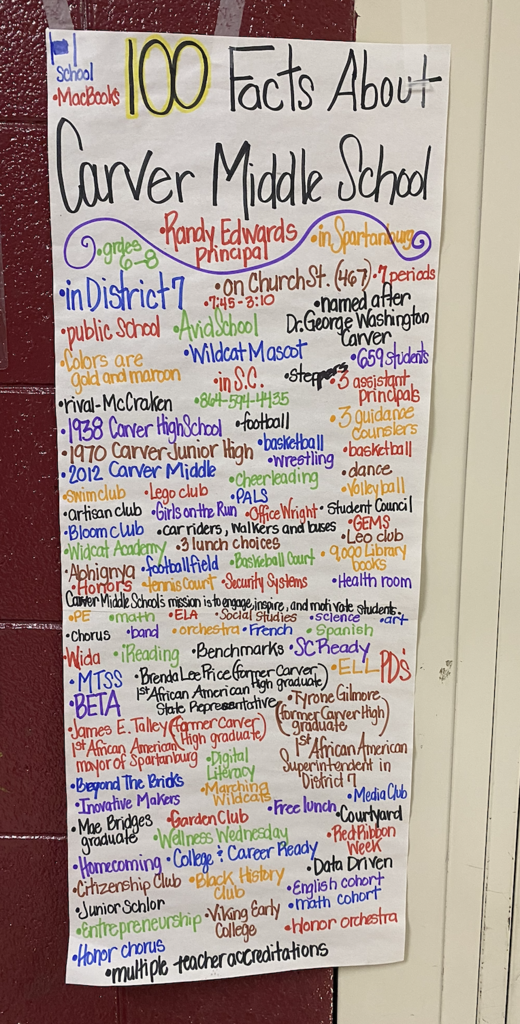 School
•MacBooks
100 Facts About
Carver Middle School
•grdes 6-8
•Randy Edwards principal
•in Spartanburg
•in District 7
•on Church St. (467)
•7 periods
•7:45-3:10
•named after Dr. George Washington Carver
•public School
•Avid School
•Colors are gold and maroon
•Wildcat Mascot
•659 students
•in S.C.
•steppers
•3 assistant principals
•rival-McCraken
•864-594-4435
•1938 Carver High School
•football
•3 guidance counslers
•1970 Carver Junior High
•basketball
•basketball
•wrestling
•2012 Carver Middle
•Cheerleading
•dance
•swim club
•Lego club
•PALS
•Volleyball
•artisan club
•Girls on the Run
•Office Wright
•Student Council
•Bloom club
•car riders, walkers and buses
•GEMS
•Leo club
•Widcat Academy
•3 lunch choices
•9,000 Library books
•Abhignya
•football field
•Basketball Court
•Honors
•tennis Court
•Security Systems
•Health room
Carver Middle School's mission is to engage, inspire, and motivate students.
•PE
•math
•ELA
•Social Studies
•science
•art
•chorus
•band
•orchestra
•French
•Spanish
•Wida
•iReading
•Benchmarks
•SC Ready
•MTSS
•Brenda Lee Price (former Carver High graduate)
1st African American State Representative
•ELL
PD's
•BETA
•James E. Talley (former Carver High graduate)
1st African American mayor of Spartanburg
•Tyrone Gilmore (former Carver High graduate)
1st African American Superintendent in District 7
•Digital Literacy
•Beyond The Bricks
•Marching Wildcats
•Inovative Makers
•Media Club
•Free lunch
•Mae Bridges graduate
•Garden Club
•Courtyard
•Wellness Wednesday
•Red Ribbon Week
•Homecoming
•College & Career Ready
•Data Driven
•Citizenship Club
•Black History Club
•English cohort
•math cohort
•Junior Schlor
•Entrepreneurship
•Viking Early College
•Honor orchestra
•Honor chorus
•multiple teacher accreditations